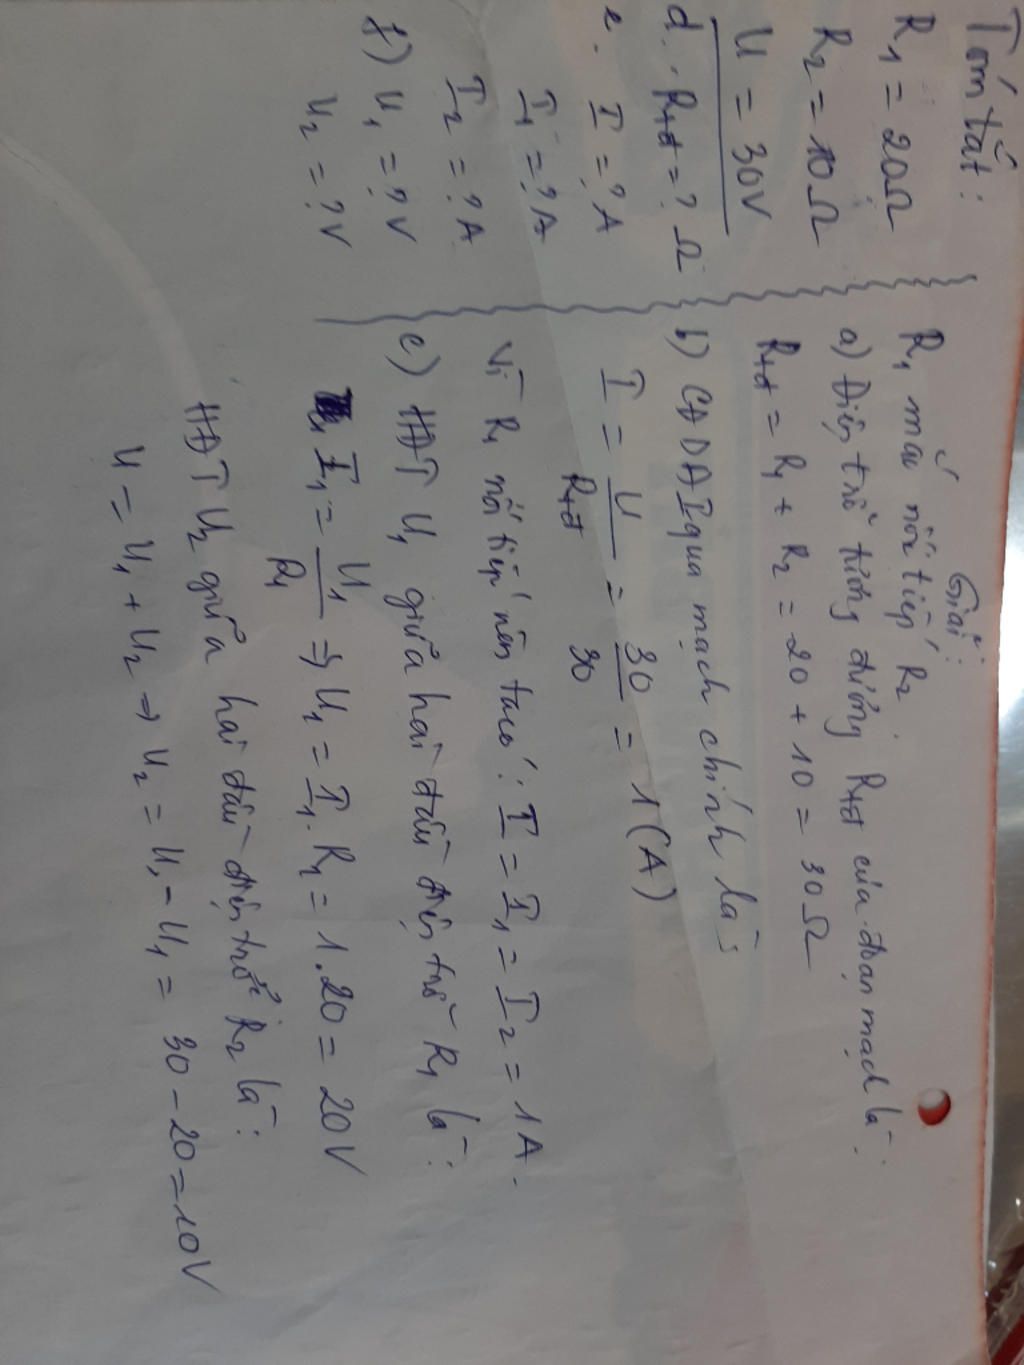 Tóm tắt:
R1 = 20Ω
R2 = 10Ω
U = 30V
d. Rtđ = ? Ω
e. I = ? A
I1 = ? A
I2 = ? A
f) U1 = ? V
U2 = ? V
Giải:
R1 mắc nối tiếp R2
a) Điện trở tương đương Rtđ của đoạn mạch là:
Rtđ = R1 + R2 = 20 + 10 = 30Ω
b) CĐDĐ I qua mạch chính là:
I = U/Rtđ = 30/30 = 1 (A)
Vì R1 nối tiếp nên ta có: I = I1 = I2 = 1A.
c) HĐT U1 giữa hai đầu điện trở R1 là:
I1 = U1/R1 => U1 = I1. R1 = 1.20 = 20V
HĐT U2 giữa hai đầu điện trở R2 là:
U = U1 + U2 → U2 = U - U1 = 30 - 20 = 10V